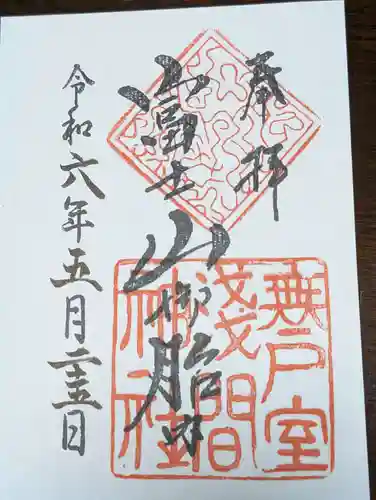 奉拝
富士山御胎内
無戸室
浅間
神社
令和六年五月二十五日